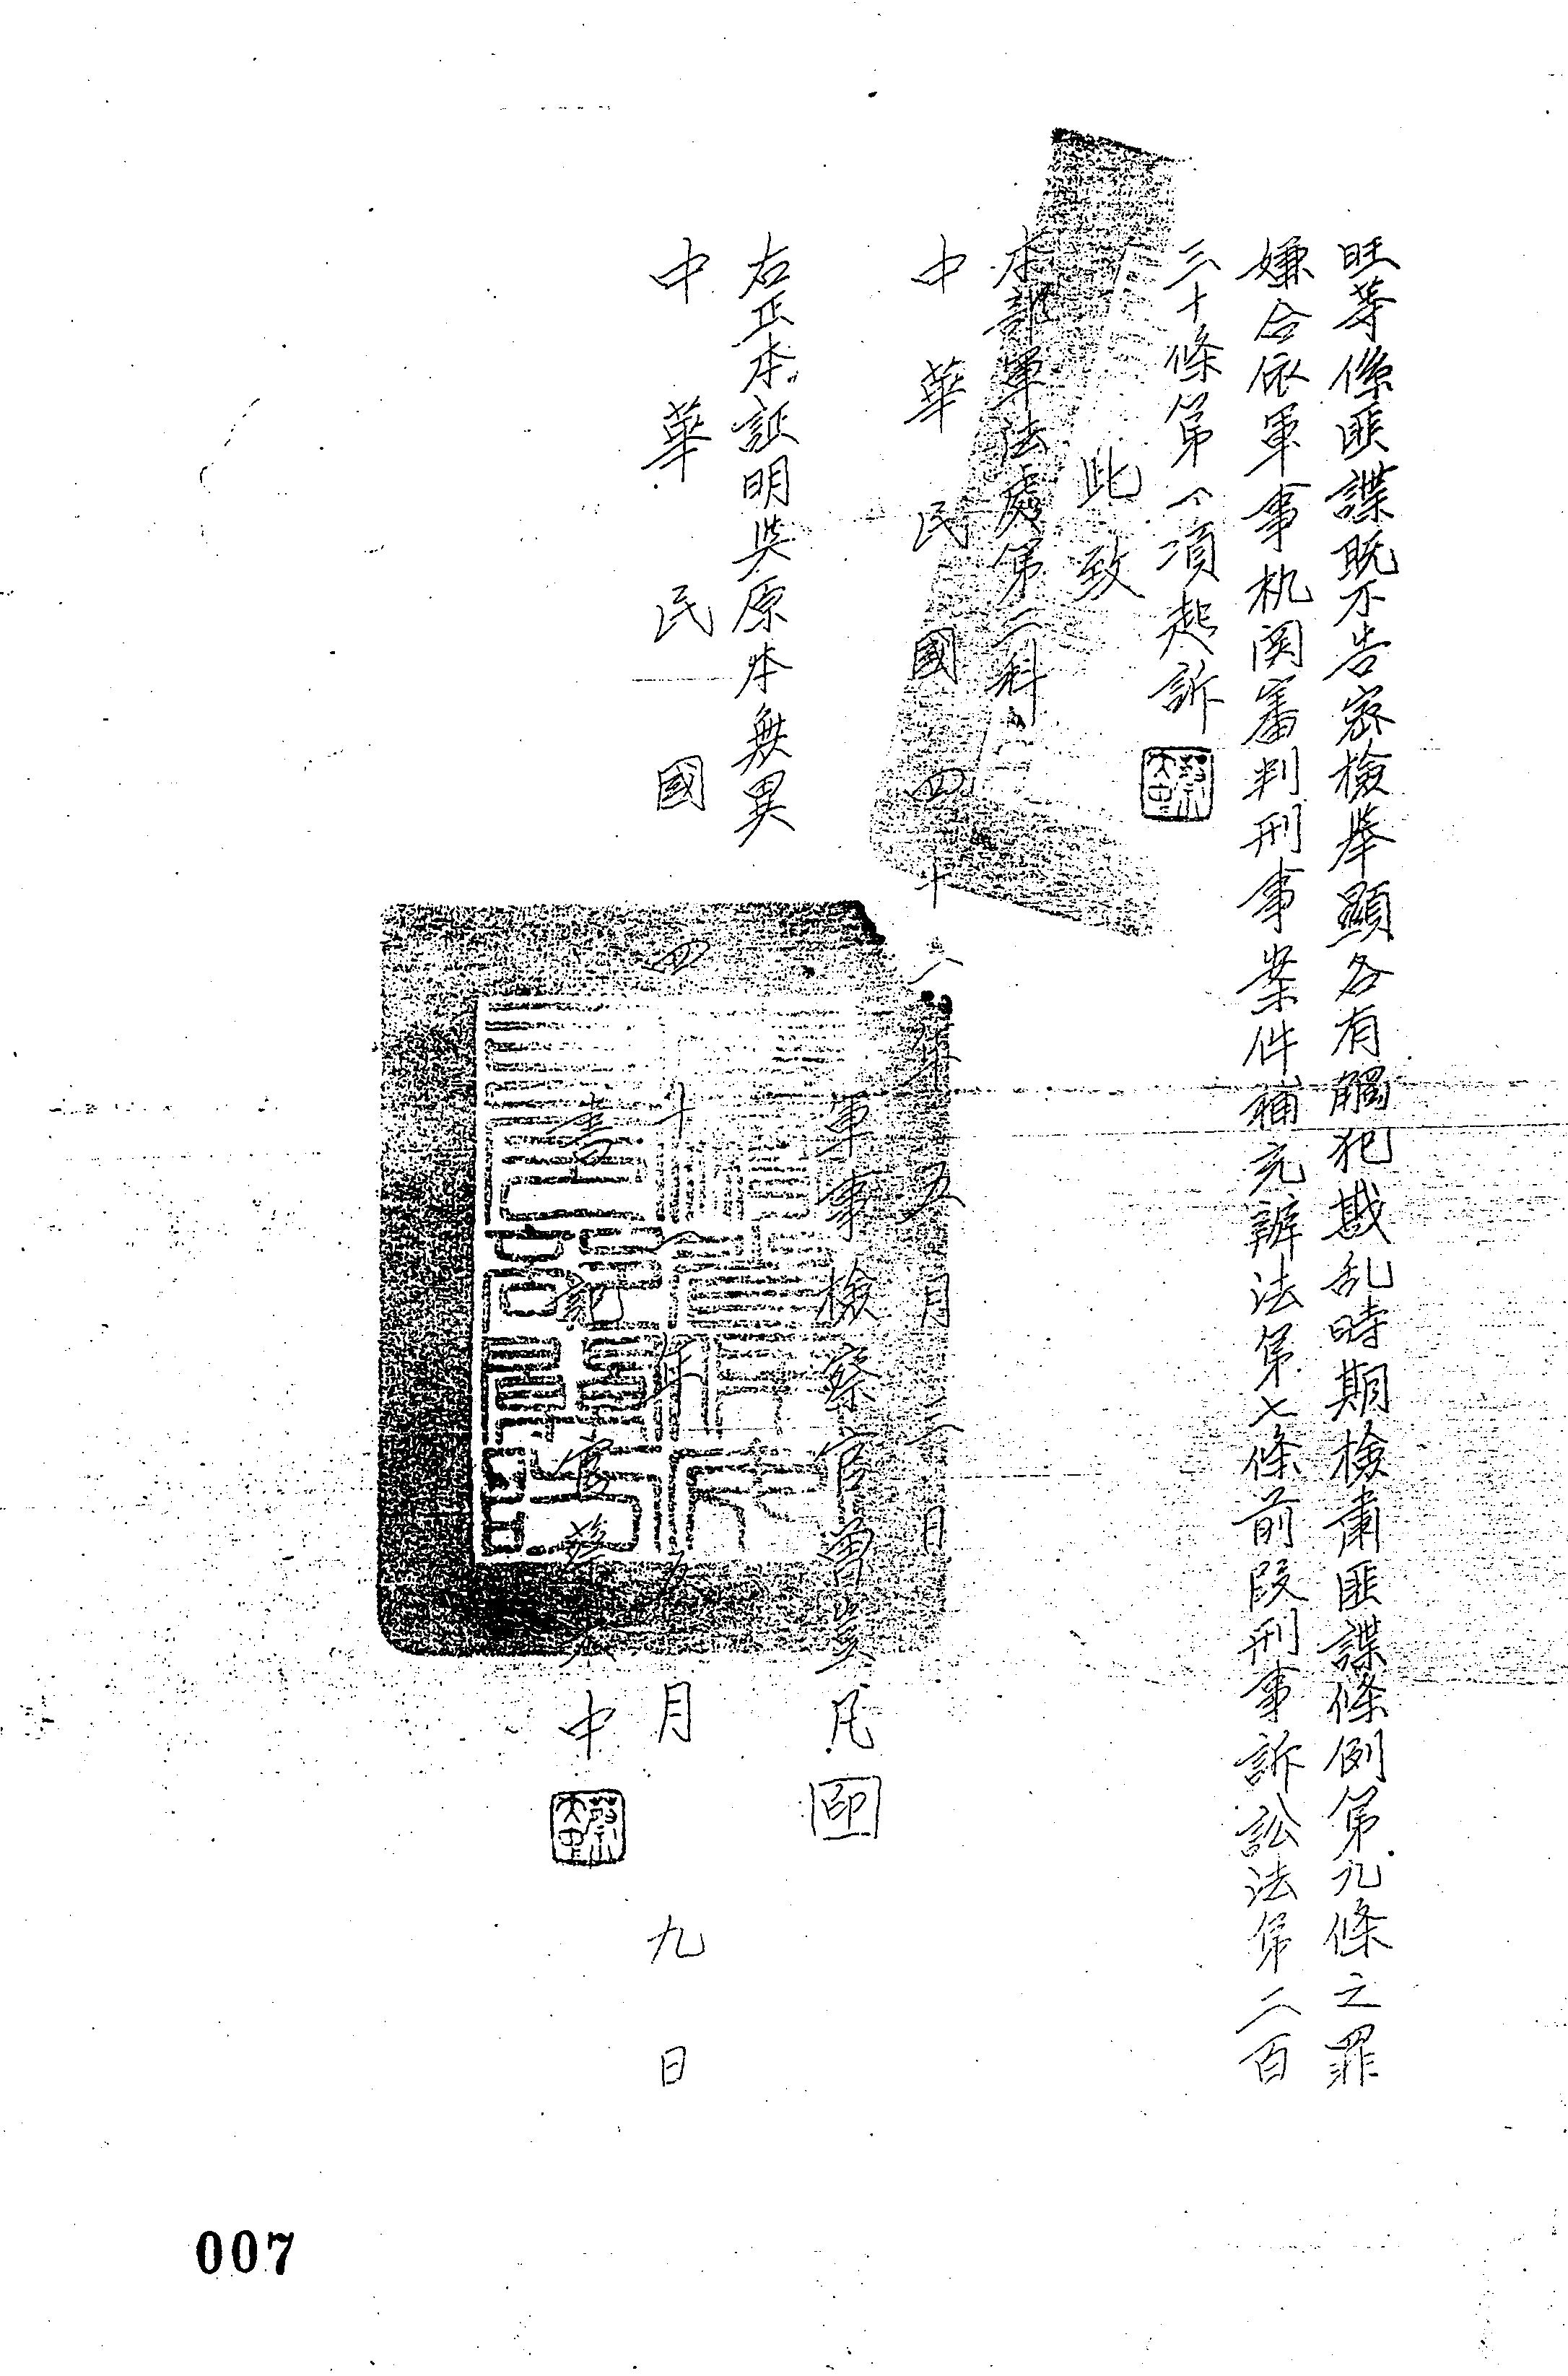 旺等係匪諜既不告密檢舉顯各有觸犯戡乱時期檢肅匪諜條例第九條之罪
嫌合依軍事机関審判刑事案件補充辦法第七條前段刑事訴訟法第二百
三十條第一項起訴
此致
本部軍法處第二科
中華民國四十六年五月三日
軍事檢察官凡印
右正本証明與原本無異
中華民國四十年月九日
書記官中
007